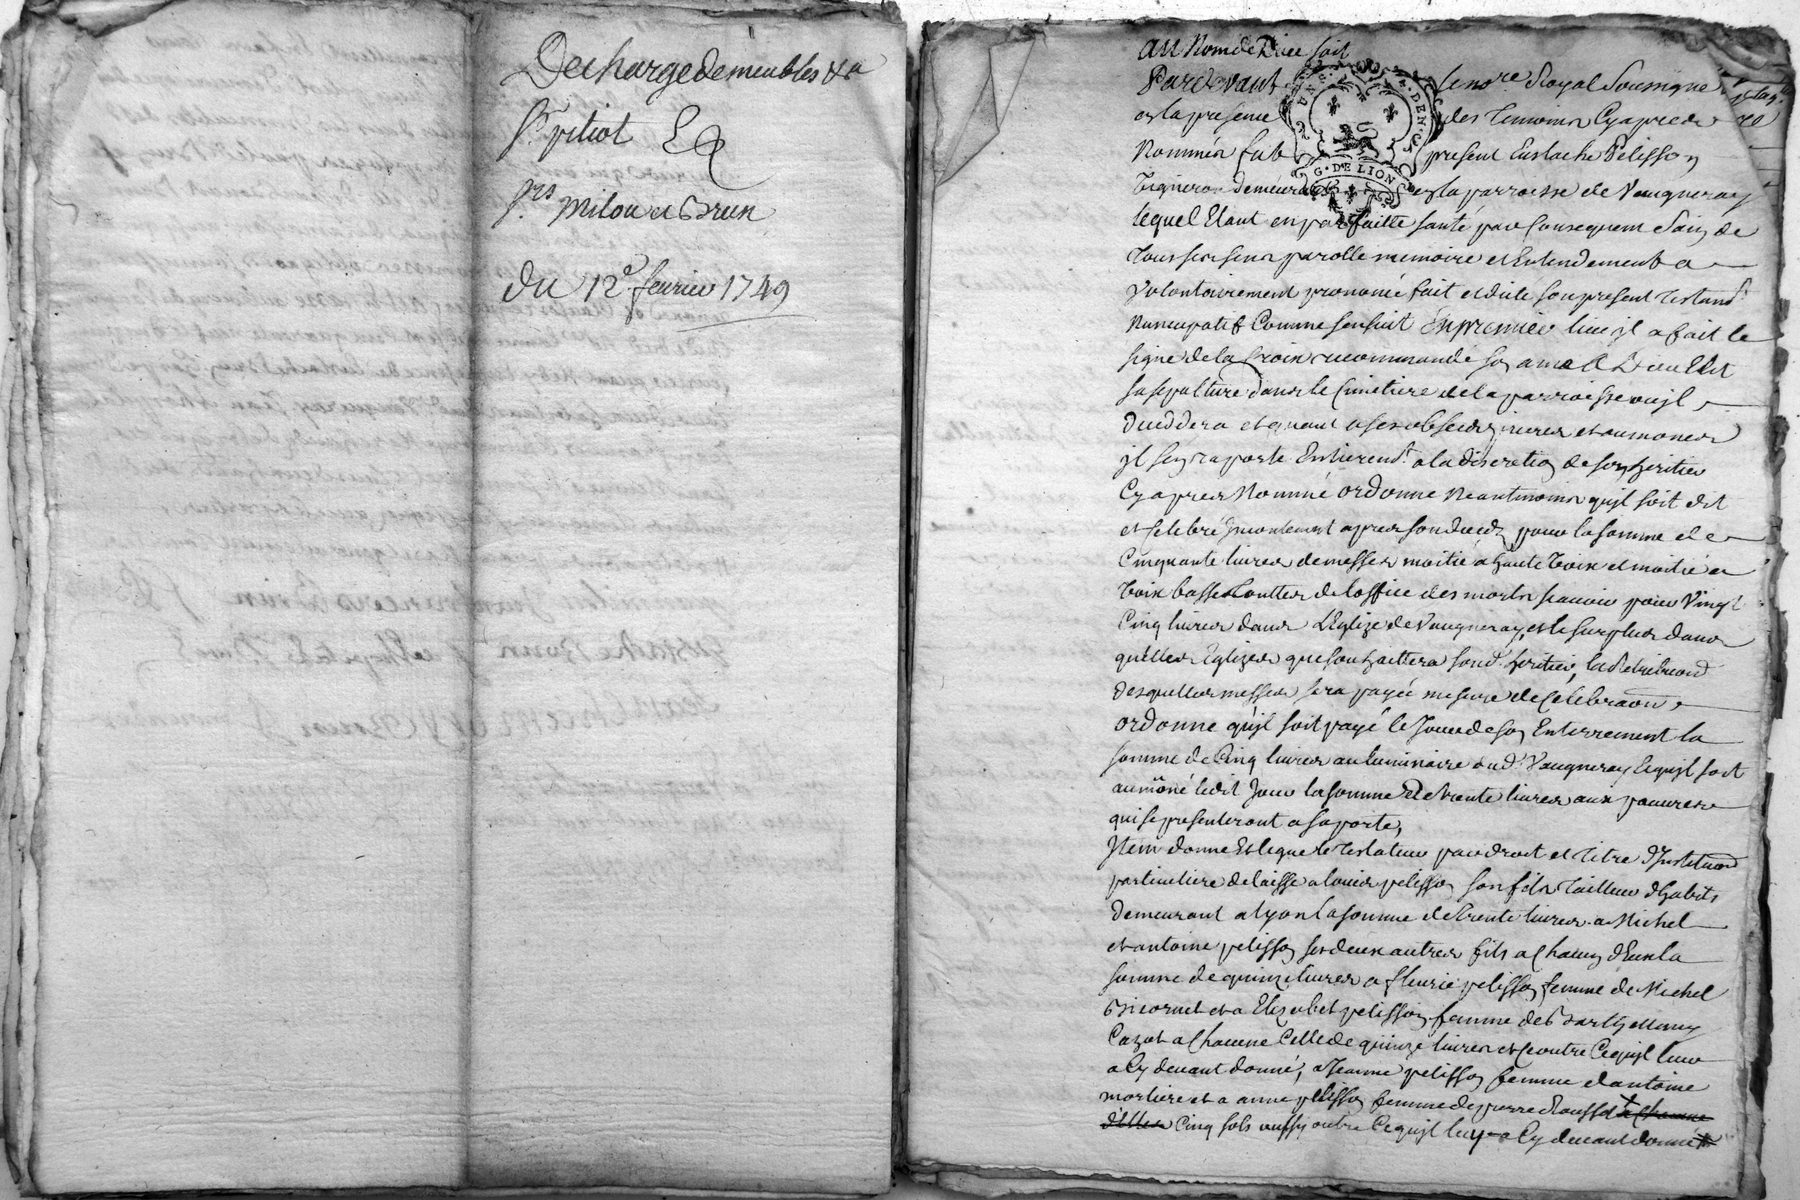 Decharge de meubles &a
Sr. pitiot
Srs. milou et Brun
du 12e. fevrier 1749
au Nom de Dieu soit
Pardevant le nore. Royal Soussigné
et la presence des Temoins Cyapres
Nommés fut present Eustache Pelisson
Vigneron demeurant en la parroisse de Vaugneray
lequel Etant en parfaitte santé par consequent Sain de
Tous ses sens parolle memoire et Entendement a
Volontairement prononcé fait et dicté son present Testamt.
Nuncupatif Comme sensuit En premier lieu jl a fait le
signe de la Croix recommandé son ame A Dieu Elit
sa sepulture dans le Cimetiere de la parroisse ou jl
deceddera et quant a ses obseques et aumones
jl sen raporte Entieremt. a la discretion de son heritier
Cyapres Nommé ordonne Neantmoins qujl soit dit
et celebré apres son deces pour la somme de
Cinquante livres de messes moitié a haute Voix et moitié a
Voix basse touttes de loffice des morts scavoir pour Vingt
Cinq livres dans L'Eglize de Vaugneray, et le surplus dans
quelles Eglizes que souhaittera sond. heritier, la Retribuon
desquelles messes sera payée mesure de Celebraon,
ordonne qujl soit payé le Jour de son Enterrement la
somme de Cinq livres au luminaire dud. Vaugneray Et qujl soit
aumôné ledit Jour la somme de trente livres aux pauvres
qui se presenteront a sa porte,
Jtem donne Et legue le Testateur par droit et titre d'Jnstituon
particuliere delaisse a louis pelisson son fils Tailleur d'habits
demeurant a Lyon la somme de trente livres a Michel
et antoine pelisson ses deux autres fils a Chacun d'Eux la
somme de quinze livres a fleurie pelisson femme de Michel
Bicornet et a Elizabet pelisson femme de Barthellemy
Cazot a Chacune Celle de quinze livres et ce outre Cequjl leur
a Cy devant donné, a Jeanne pelisson femme d'antoine
morliere et a anne pelisson femme de pierre Rousset a Chacune
d'Elles Cinq sols aussy outre Cequjl leur a Cy devant donné
G. DE LION